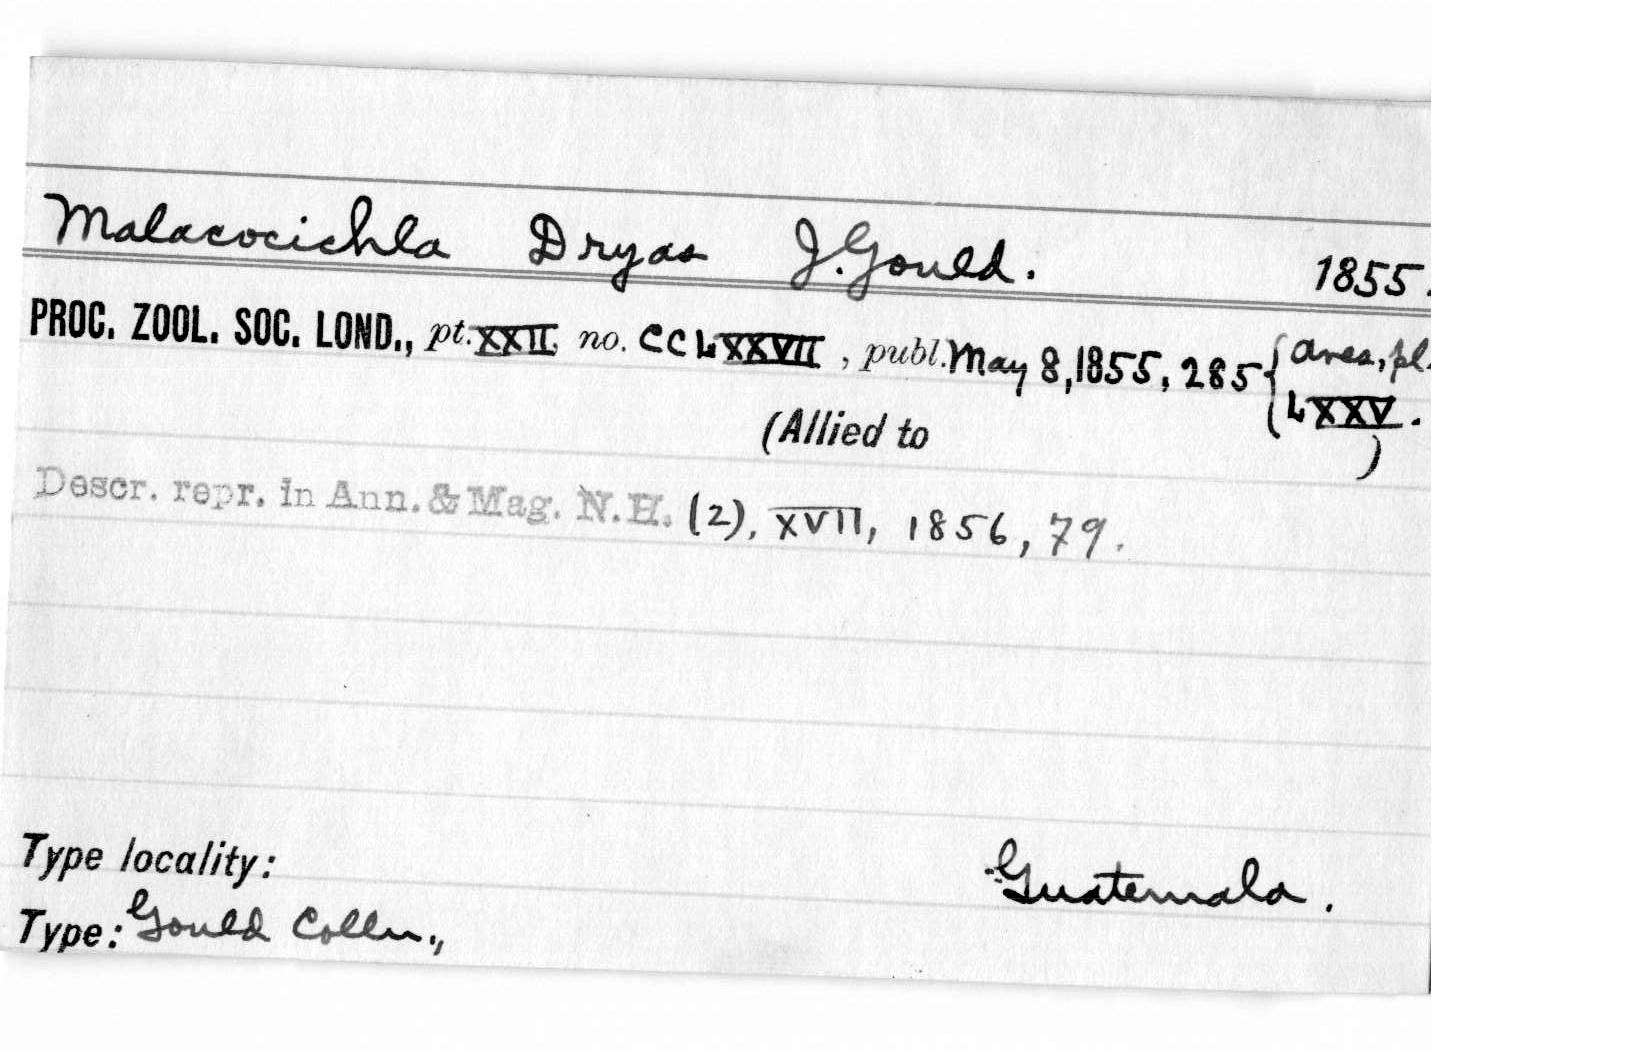 Malacocichla Dryas J. Gould. 1855.
PROC. ZOOL. SOC. LOND., pt. XXII, no. CCLXXVII, publ. May 8, 1855, 285 { Aves, pl.
LXXV.
(Allied to )
Descr. repr. in Ann. & Mag. N.H. (2), XVII, 1856, 79.
Type locality: Guatemala.
Type: Gould Colln.,